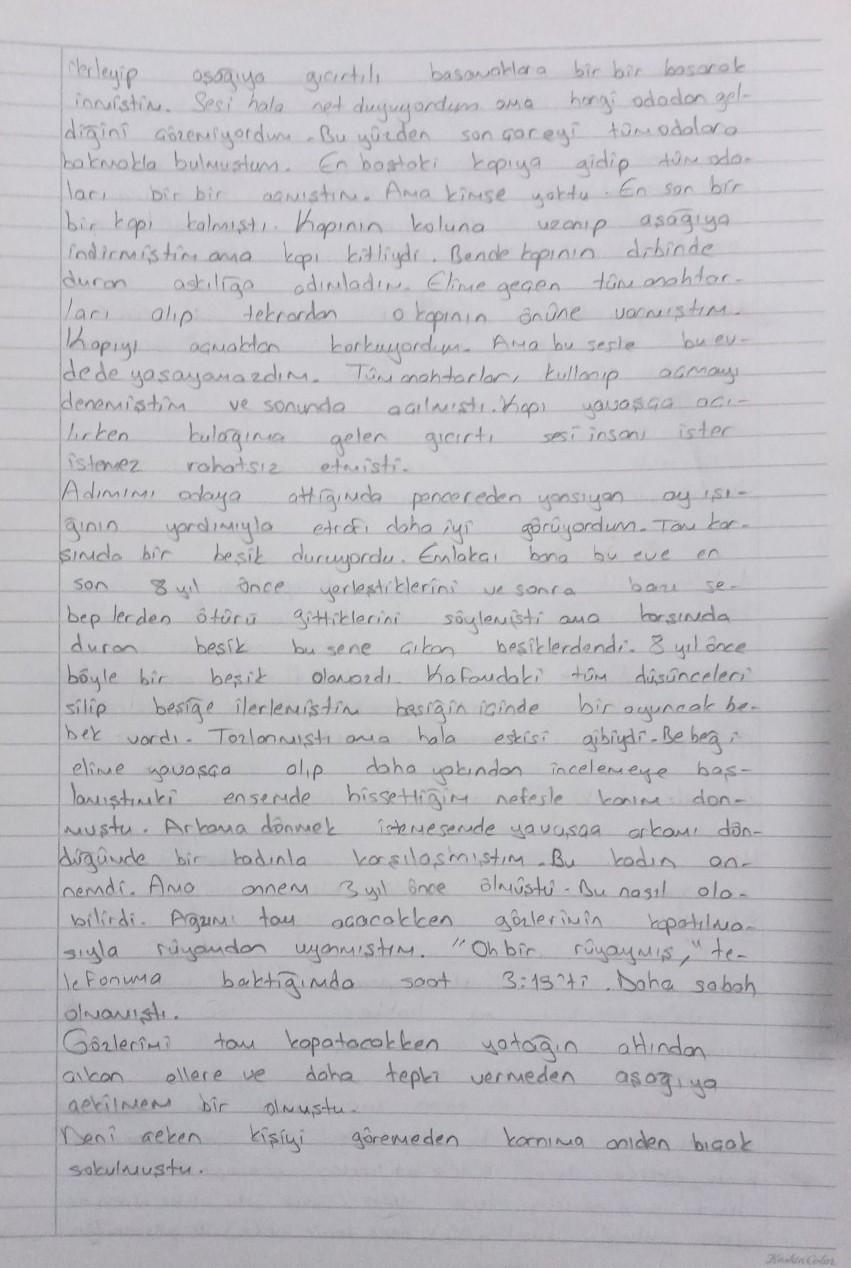 ilerleyip aşağıya gıcırtılı basamaklara bir bir basarak
inmiştim. Sesi hala net duyuyordum ama hangi odadan gel-
diğini çözemiyordum. Bu yüzden son çareyi tüm odalara
bakmakla bulmuştum. En baştaki kapıya gidip tüm oda-
ları bir bir açmıştım. Ama kimse yoktu. En son bir
bir kapı kalmıştı. Kapının koluna uzanıp aşağıya
indirmiştim ama kapı kitliydi. Bende kapının dibinde
duran askılığa adımladım. Elime geçen tüm anahtar-
ları alıp tekrardan o kapının önüne varmıştım.
Kapıyı açmaktan korkuyordum. Ama bu sesle bu ev-
dede yaşayamazdım. Tüm anahtarları kullanıp açmayı
denemiştim ve sonunda açılmıştı. Kapı yavaşça açı-
lırken kulağıma gelen gıcırtı sesi insanı ister
istemez rahatsız etmişti.
Adımımı odaya attığımda pencereden yansıyan ay ışı-
ğının yardımıyla etrafı daha iyi görüyordum. Tam kar-
şımda bir beşik duruyordu. Emlakçı bana bu eve en
son 8 yıl önce yerleştiklerini ve sonra bazı se-
beplerden ötürü gittiklerini söylemişti ama karşımda
duran beşik bu sene çıkan beşiklerdendi. 8 yıl önce
böyle bir beşik olamazdı. Kafamdaki tüm düşünceleri
silip beşiğe ilerlemiştim beşiğin içinde bir oyuncak be-
bek vardı. Tozlanmıştı ama hala eskisi gibiydi. Bebeği
elime yavaşça alıp daha yakından incelemeye baş-
lamıştımki ensemde hissettiğim nefesle kanım don-
muştu. Arkama dönmek istemesemde yavaşça arkamı dön-
düğümde bir kadınla karşılaşmıştım. Bu kadın an-
nemdi. Ama annem 3 yıl önce ölmüştü. Bu nasıl ola-
bilirdi. Ağzımı tam açacakken gözlerimin kapatılma-
sıyla rüyamdan uyanmıştım. "Oh bir rüyaymış," te-
lefonuma baktığımda saat 3:15'ti. Daha sabah
olmamıştı.
Gözlerimi tam kapatacakken yatağın altından
çıkan ellere ve daha tepki vermeden aşağıya
çekilmem bir olmuştu.
Beni çeken kişiyi göremeden karnıma aniden bıçak
sokulmuştu.